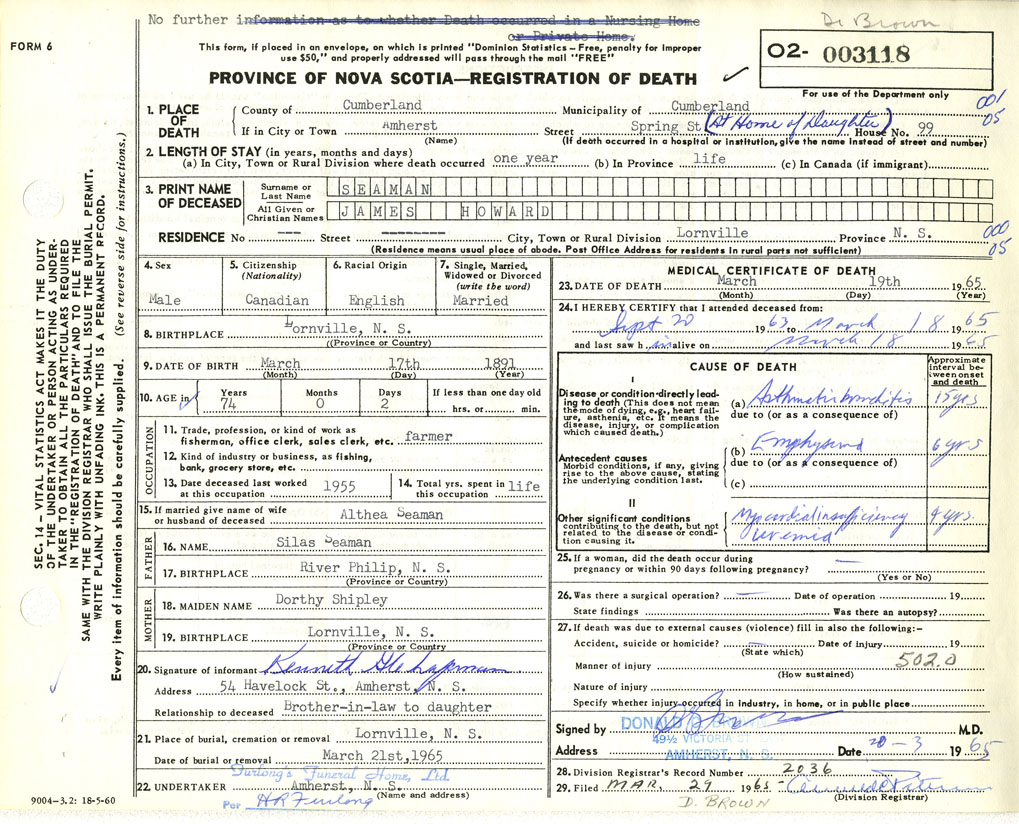 No further information as to whether Death occurred in a Nursing Home
or Private Home.
D. Brown
FORM 6
This form, if placed in an envelope, on which is printed "Dominion Statistics – Free, penalty for improper
use $50," and properly addressed will pass through the mail "FREE"
PROVINCE OF NOVA SCOTIA—REGISTRATION OF DEATH
02- 003118
For use of the Department only
001
05
1. PLACE OF DEATH
County of Cumberland Municipality of Cumberland
If in City or Town Amherst Street Spring St (At Home of Daughter) House No. 99
(Name) (If death occurred in a hospital or institution, give the name instead of street and number)
2. LENGTH OF STAY (in years, months and days)
(a) In City, Town or Rural Division where death occurred one year (b) In Province life (c) In Canada (if immigrant)
3. PRINT NAME OF DECEASED
Surname or Last Name SEAMAN
All Given or Christian Names JAMES HOWARD
RESIDENCE No --- Street -------- City, Town or Rural Division Lornville Province N. S.
000
05
(Residence means usual place of abode. Post Office Address for residents in rural parts not sufficient)
4. Sex
Male
5. Citizenship
(Nationality)
Canadian
6. Racial Origin
English
7. Single, Married,
Widowed or Divorced
(write the word)
Married
8. BIRTHPLACE Lornville, N. S.
((Province or Country)
9. DATE OF BIRTH March 17th 1891
(Month) (Day) (Year)
10. AGE in
Years 74
Months 0
Days 2
If less than one day old
hrs. or min.
OCCUPATION
11. Trade, profession, or kind of work as
fisherman, office clerk, sales clerk, etc. farmer
12. Kind of industry or business, as fishing,
bank, grocery store, etc.
13. Date deceased last worked
at this occupation 1955
14. Total yrs. spent in
this occupation life
15. If married give name of wife
or husband of deceased Althea Seaman
FATHER
16. NAME Silas Seaman
17. BIRTHPLACE River Philip, N. S.
(Province or Country)
MOTHER
18. MAIDEN NAME Dorthy Shipley
19. BIRTHPLACE Lornville, N. S.
(Province or Country)
20. Signature of informant Kenneth Chapman
Address 54 Havelock St., Amherst, N. S.
Relationship to deceased Brother-in-law to daughter
21. Place of burial, cremation or removal Lornville, N. S.
Date of burial or removal March 21st, 1965
Furlong's Funeral Home, Ltd.
22. UNDERTAKER Amherst, N. S.
(Name and address)
Per H R Furlong
9004–3.2: 18-5-60
MEDICAL CERTIFICATE OF DEATH
23. DATE OF DEATH March 19th 1965
(Month) (Day) (Year)
24. I HEREBY CERTIFY that I attended deceased from:
Sept 20 1963 to March 18 1965
and last saw him alive on March 18 1965
CAUSE OF DEATH
Approximate
interval between onset
and death
I
Disease or condition directly leading to death (This does not mean
the mode of dying, e.g., heart failure, asthenia, etc. It means the
disease, injury, or complication
which caused death.)
(a) Asthmatic bronchitis 15 yrs
due to (or as a consequence of)
(b) Emphysema 6 yrs
due to (or as a consequence of)
(c)
Antecedent causes
Morbid conditions, if any, giving
rise to the above cause, stating
the underlying condition last.
II
Other significant conditions
contributing to the death, but not
related to the disease or condition causing it.
Myocardial insufficiency 4 yrs.
uremia
25. If a woman, did the death occur during
pregnancy or within 90 days following pregnancy?
(Yes or No)
26. Was there a surgical operation? Date of operation 19
State findings Was there an autopsy?
27. If death was due to external causes (violence) fill in also the following:–
Accident, suicide or homicide? Date of injury 19
(State which)
Manner of injury 502.0
(How sustained)
Nature of injury
Specify whether injury occurred in industry, in home, or in public place
Signed by M.D.
DONALD
49½ VICTORIA ST
AMHERST, N. S.
Address Date 20-3 1965
28. Division Registrar's Record Number 2036
29. Filed MAR. 29 1965
(Division Registrar)
D. BROWN
SEC. 14 – VITAL STATISTICS ACT MAKES IT THE DUTY
OF THE UNDERTAKER OR PERSON ACTING AS UNDERTAKER TO OBTAIN ALL THE PARTICULARS REQUIRED
IN THE "REGISTRATION OF DEATH" AND TO FILE THE
SAME WITH THE DIVISION REGISTRAR WHO SHALL ISSUE THE BURIAL PERMIT.
WRITE PLAINLY WITH UNFADING INK. THIS IS A PERMANENT RECORD.
Every item of information should be carefully supplied. (See reverse side for instructions.)